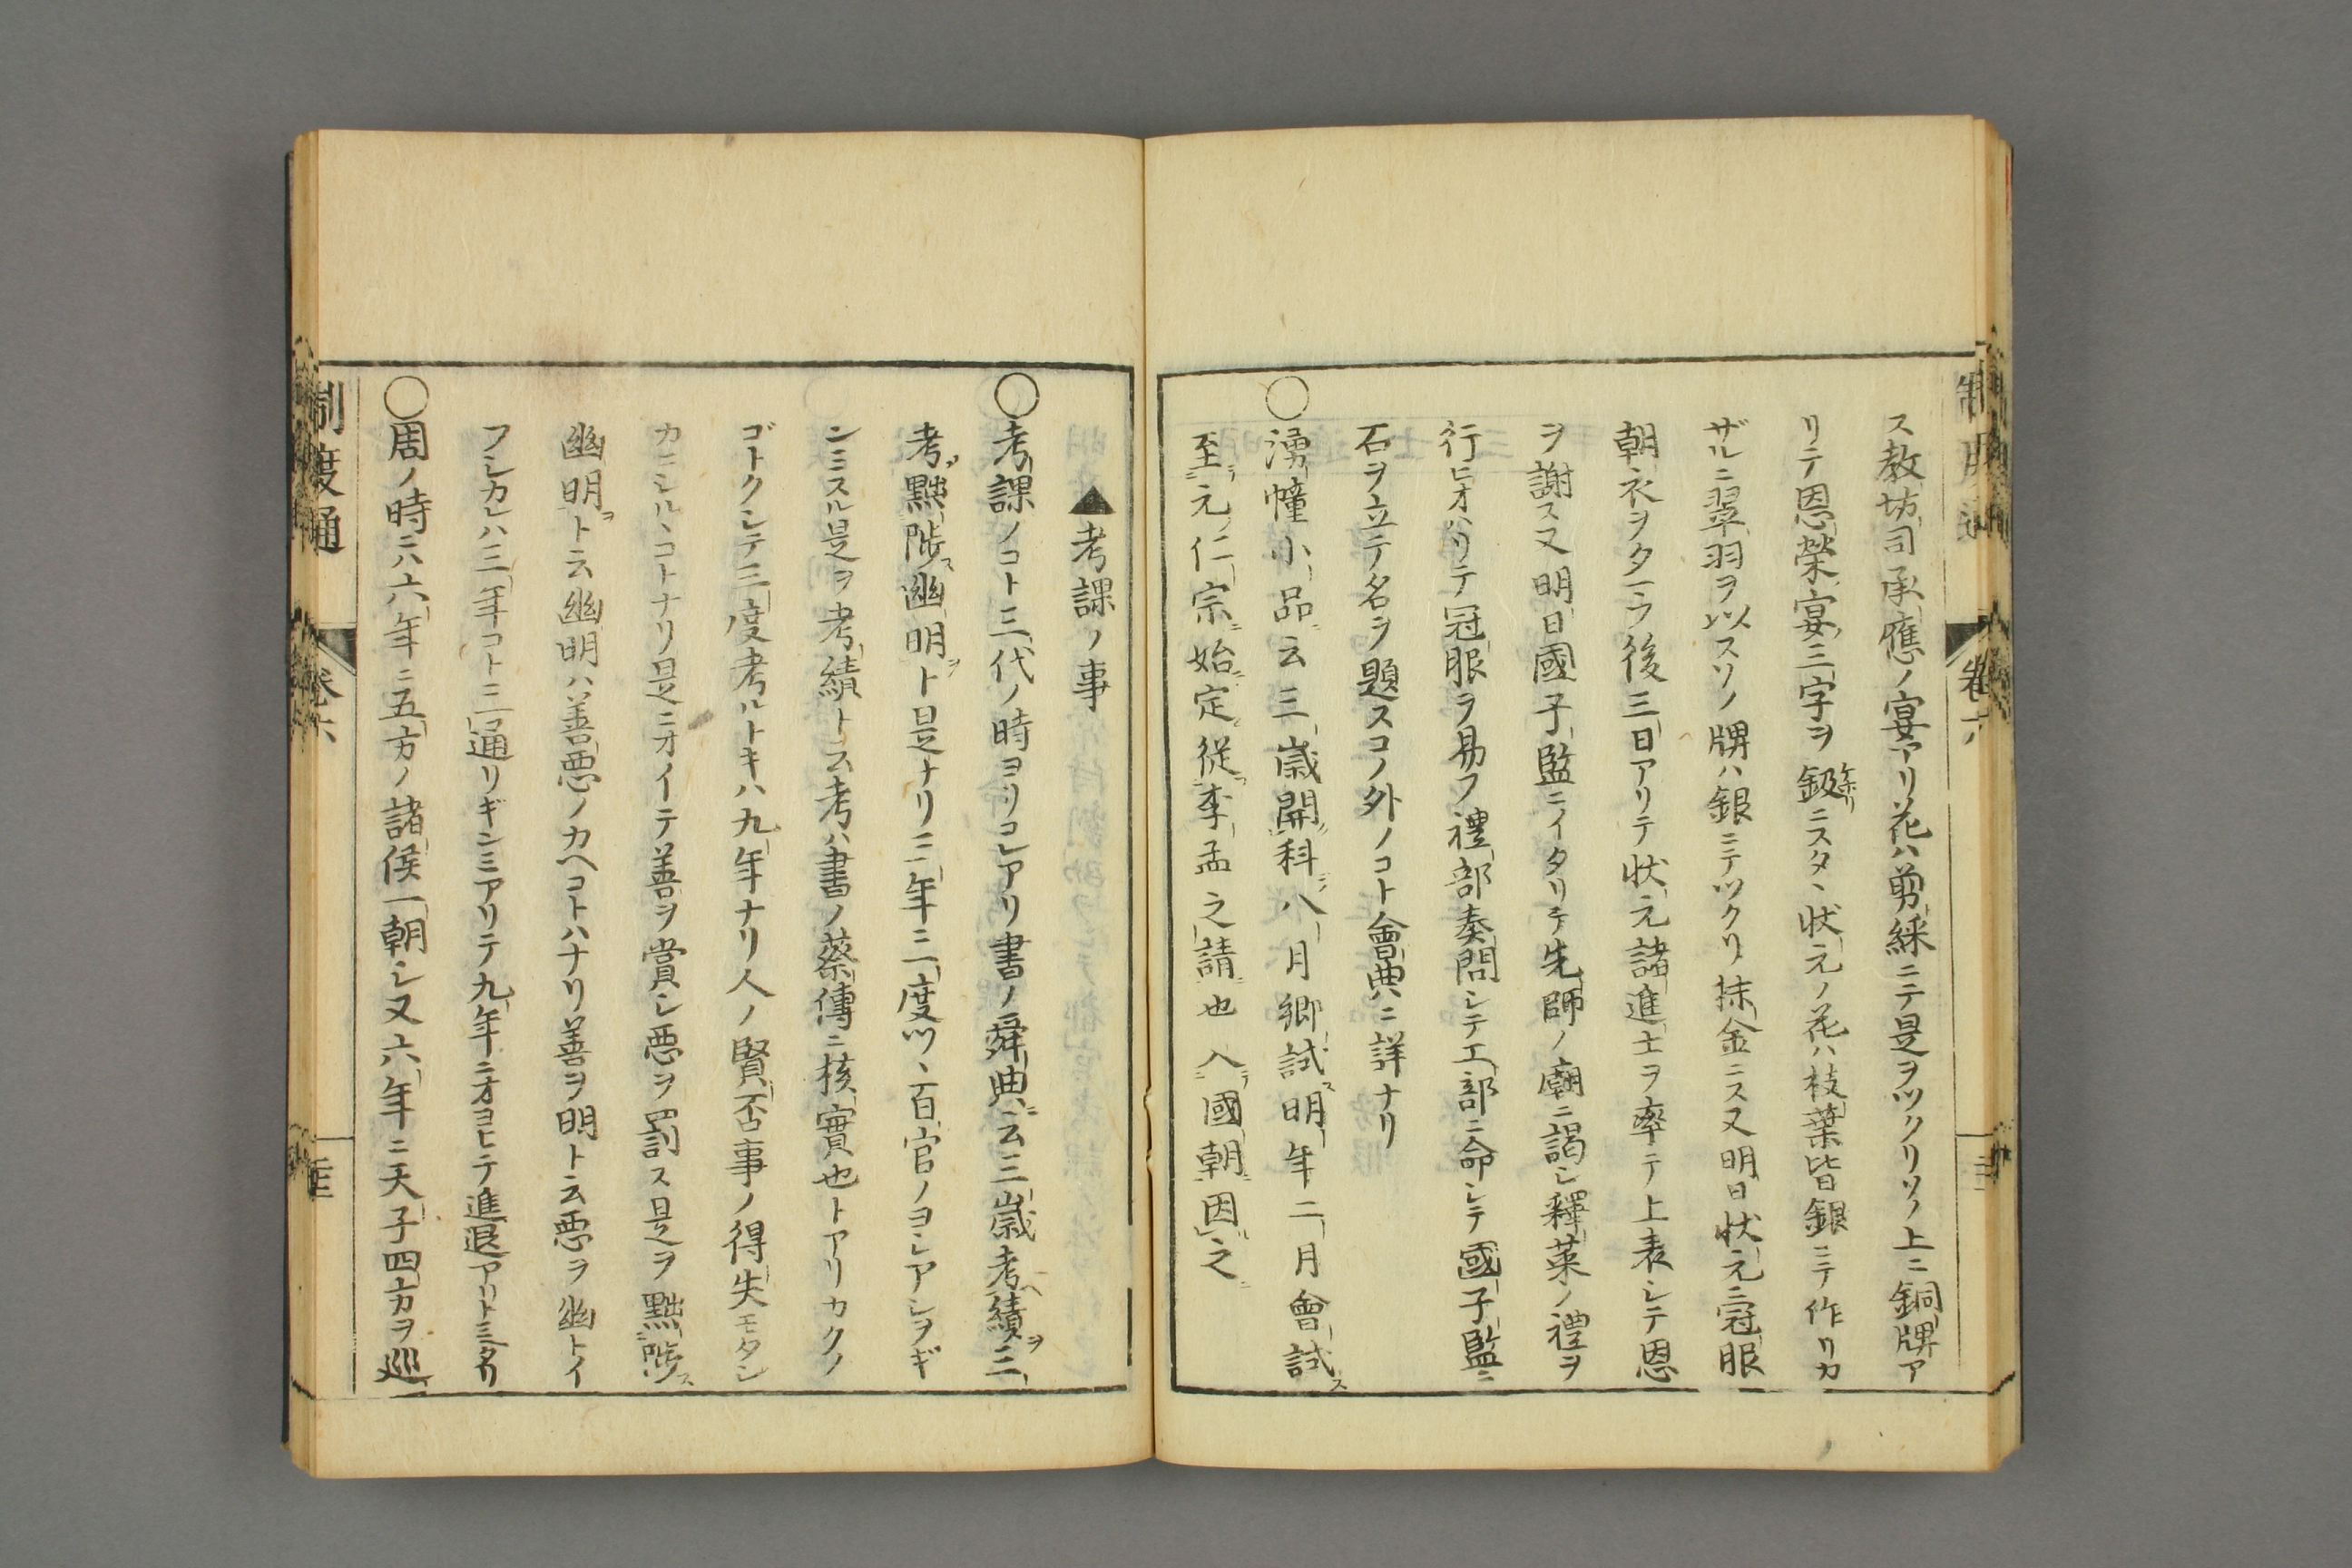 ス教坊司承應ノ宴アリ花ハ剪綵ニテ是ヲツクリソノ上ニ銅牌ア
リテ恩榮宴ノ三字ヲ鈒ニスタヽ状元ノ花ハ枝葉皆銀ニテ作リカ
ザルニ翠羽ヲ以スソノ牌ハ銀ニテツクリ抹金ニス又明日状元ニ冠服
朝衣ヲタマフ後三日アリテ状元諸進士ヲ率テ上表シテ恩
ヲ謝ス又明日國子監ニイタリテ先師ノ廟ニ謁シ釋菜ノ禮ヲ
行ヒオハリテ冠服ヲ易フ禮部奏問シテ工部ニ命シテ國子監ニ
石ヲ立テ名ヲ題スコノ外ノコト會典ニ詳ナリ
○湧幢小品ニ云三歳開科八月郷試明年二月會試
至元ノ仁宗始定從李孟之請也入國朝因之
▲考課ノ事
○考課ノコト三代ノ時ヨリコレアリ書ノ舜典ニ云三歳考績三
考黜陟幽明ト是ナリ三年ニ一度ツヽ百官ノヨシアシヲギ
ンミスル是ヲ考績ト云考ハ書ノ蔡傳ニ核實也トアリカクノ
ゴトクシテ三度考ルトキハ九年ナリ人ノ賢否事ノ得失モタシ
カニシルヽコトナリ是ニオイテ善ヲ賞シ悪ヲ罰ス是ヲ黜陟
幽明ト云幽明ハ善悪ノカヘコトハナリ善ヲ明ト云悪ヲ幽トイ
フシカレハ三年コトニ一通リギンミアリテ九年ニオヨヒテ進退アリトミヘタリ
○周ノ時ニハ六年ニ五方ノ諸侯一朝シ又六年ニ天子四方ヲ巡
制度通
巻六